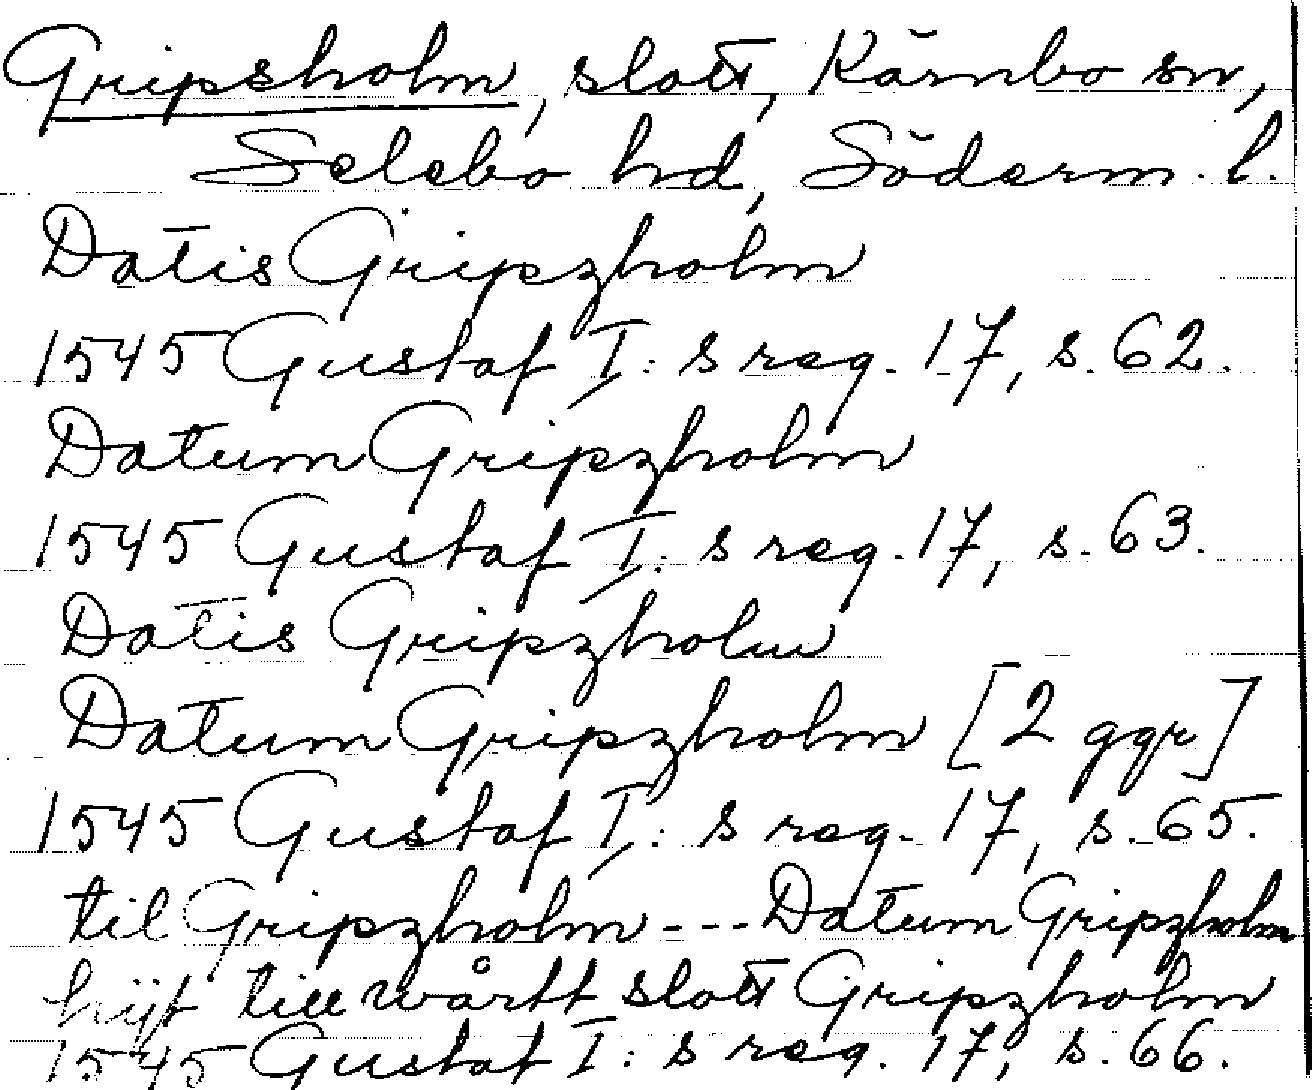 Gripsholm, slott, Kärnbo sn,
Selebo hd, Söderm. l.
Datis Gripzholm
1545 Gustaf I: s reg. 17, s. 62.
Datum Gripzholm
1545 Gustaf I: s reg. 17, s. 63.
Datis Gripzholm
Datum Gripzholm [2 ggr]
1545 Gustaf I: s reg. 17, s. 65.
til Gripzholm --- Datum Gripzholm
hijt till wårtt slott Gripzholm
1545 Gustaf I: s reg. 17, s. 66.